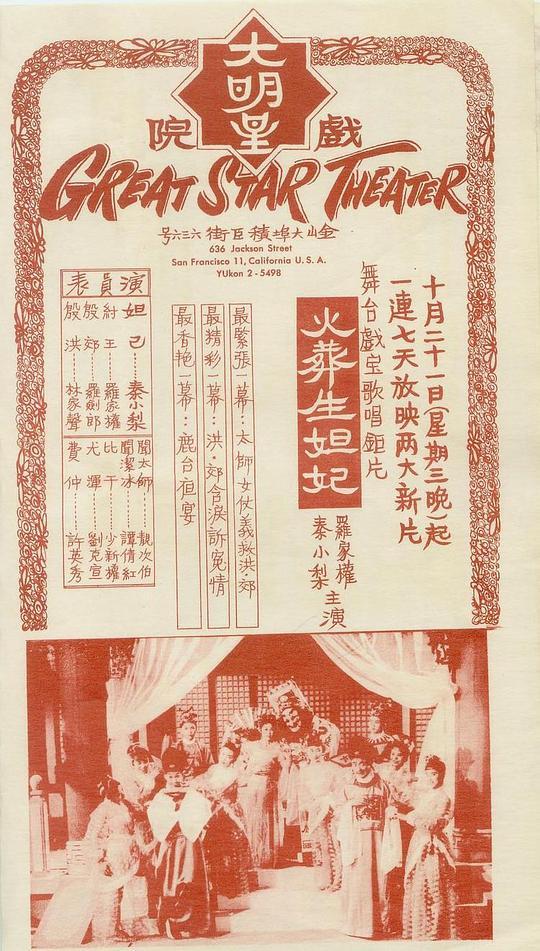 大明星
戲院
GREAT STAR THEATER
金山大埠積臣街六三六号
636 Jackson Street
San Francisco 11, California U. S. A.
YUkon 2 - 5498
十月二十一日(星期三晚)起
一連七天放映两大新片
舞台戲宝歌唱鉅片
火葬生妲妃
羅家權
秦小梨
主演
最緊張一幕：太師女仗義救洪、郊
最精彩一幕：洪、郊含淚訴冤情
最香艷一幕：鹿台夜宴
演員表
妲己……秦小梨
紂王……羅家權
殷郊……羅劍郎
殷洪……林家聲
聞太師……靚次伯
聞潔冰……譚倩紅
比干……少新權
尤渾……劉克宣
費仲……許英秀